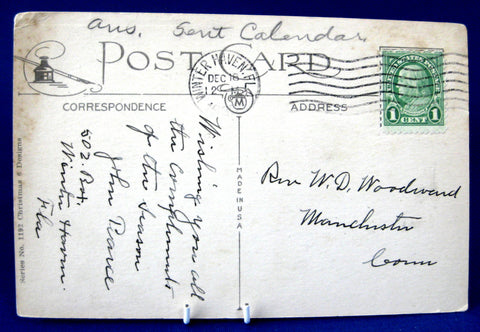 Ans. Sent Calendar.
POST CARD
WINTER HAVEN, F
DEC 18
M
CORRESPONDENCE
ADDRESS
UNITED STATES POSTAGE
1 CENT 1
Wishing you all
the compliments
of the season
John Pearce
502. Box.
Winter Haven.
Fla
MADE IN U.S.A.
Rev W. D. Woodward
Manchester
Conn
Series No. 1197 Christmas 6 Designs